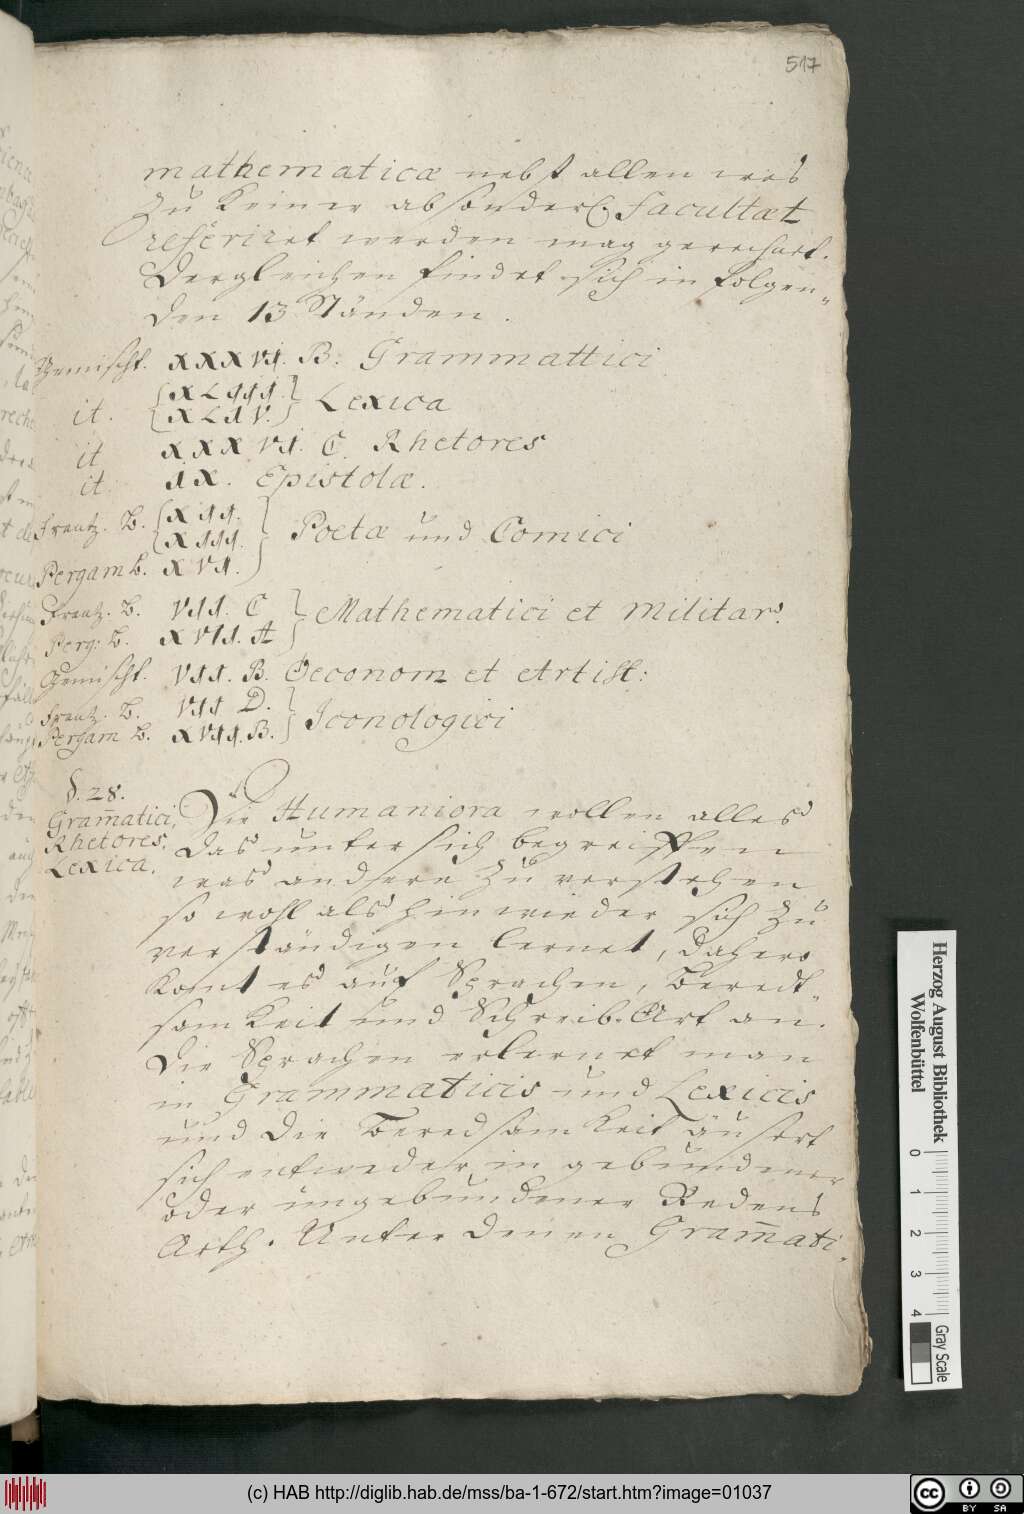 517
mathematicæ nebst allen was
zu keiner absonderl. Facultæt
referiret werden mag gerechnet.
Dergleichen findet sich in folgen-
den 13 Ständen.
Gemischt. XXXVI. B: Grammattici
it. XLIII. XLIV. Lexica
it XXXVI. C. Rhetores
it. IX. Epistolæ.
Frantz. B. XII. XIII. Poetæ und Comici
Pergam B. XVI.
Frantz. B. VII. C Mathematici et Militar.
Perg: B. XVII. A
Gemischt. VII. B. Oeconom et Artist:
Frantz. B. VII D. Iconologici
Pergam B. XVII. B.
§. 28.
Gram̄atici,
Rhetores,
Lexica.
Die Humaniora wollen alles
das unter sich begreiffen
was andere zu verstehen
so wohl als hinwieder sich zu
verständigen lernet, dahero
komt es auf Sprachen, Beredt-
samkeit und Schreib-Art an.
Die Sprachen erlernet man
in Grammaticis und Lexicis
und die Beredsamkeit äusert
sich entweder in gebundener
oder ungebundener Redens
Arth. Unter denen Gram̄ati-
Herzog August Bibliothek
Wolfenbüttel
0 1 2 3 4
Gray Scale
(c) HAB http://diglib.hab.de/mss/ba-1-672/start.htm?image=01037
cc BY SA